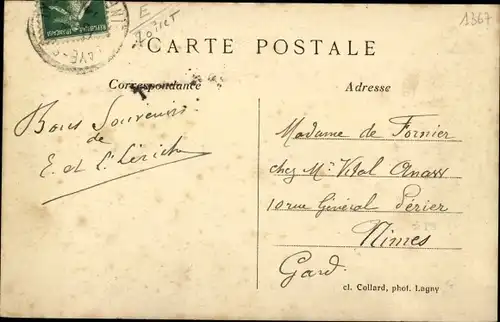 1367
E
Loiret
CARTE POSTALE
Correspondance
Adresse
Bons Souvenirs
de
E. et L.
Madame de Fornier
chez Mr Vital
10 rue Général Périer
Nîmes
Gard.
cl. Collard, phot. Lagny